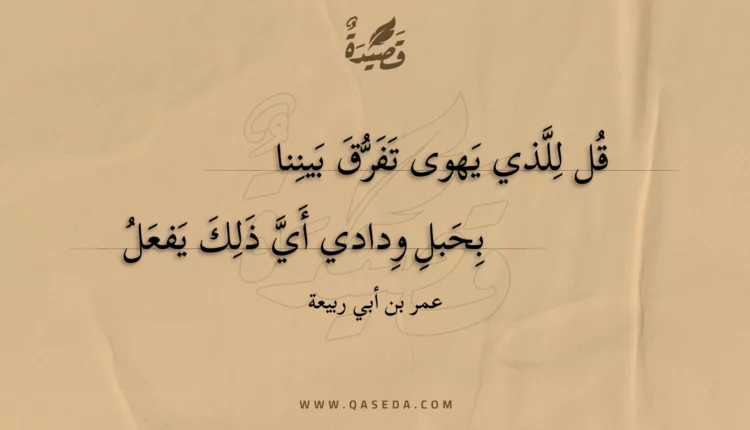 قَصِيدَةٌ
قُل لِلَّذي يَهوى تَفَرُّقَ بَينِنا
بِحَبلِ وِدادي أَيَّ ذَلِكَ يَفعَلُ
عمر بن أبي ربيعة
WWW.QASEDA.COM